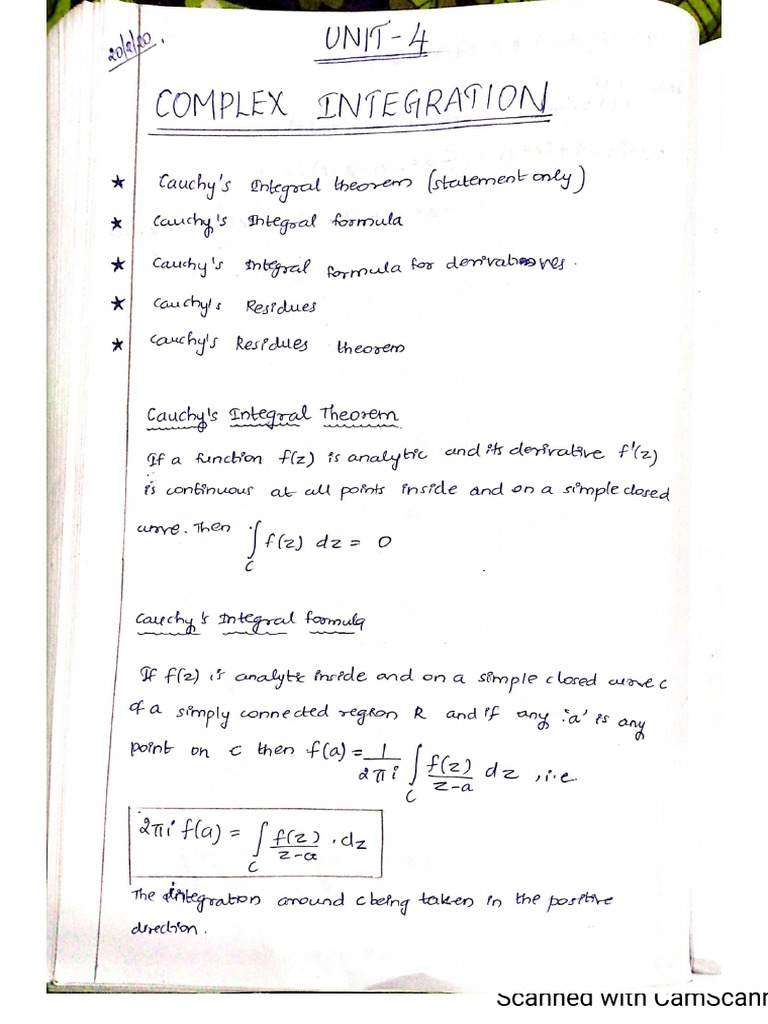 20/2/20.
UNIT-4
COMPLEX INTEGRATION
★ Cauchy's Integral theorem (statement only)
★ Cauchy's Integral formula
★ Cauchy's Integral formula for derivatives.
★ Cauchy's Residues
★ Cauchy's Residues theorem
Cauchy's Integral Theorem
If a function f(z) is analytic and its derivative f'(z)
is continuous at all points inside and on a simple closed
curve. Then ∫_C f(z) dz = 0
Cauchy's Integral formula
If f(z) is analytic inside and on a simple closed curve c
of a simply connected region R and if any 'a' is any
point on c then f(a) = 1/2πi ∫_C f(z)/z-a dz , i.e.
2πi f(a) = ∫_C f(z)/z-a . dz
The integration around c being taken in the positive
direction.
Scanned with CamScann